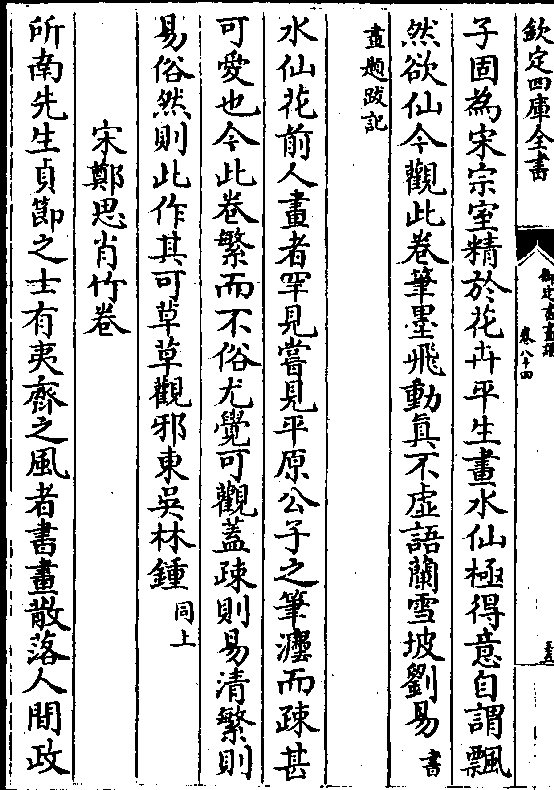 欽定四庫全書
御定書畫譜
卷八十四
子固為宋宗室精於花卉平生畫水仙極得意自謂飄
然欲仙今觀此卷筆墨飛動真不虛語蘭雪坡劉易書
畫題跋記
水仙花前人畫者罕見嘗見平原公子之筆瀝而疎甚
可愛也今此卷繁而不俗尤覺可觀蓋疎則易清繁則
易俗然則此作其可草草觀邪東吳林鍾同上
宋鄭思肖竹卷
所南先生貞節之士有夷齊之風者書畫散落人間政